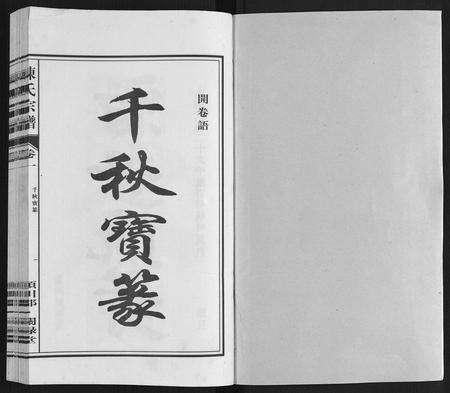 開卷語
千秋寶篆
陳氏宗譜
卷一
千秋寶篆
一